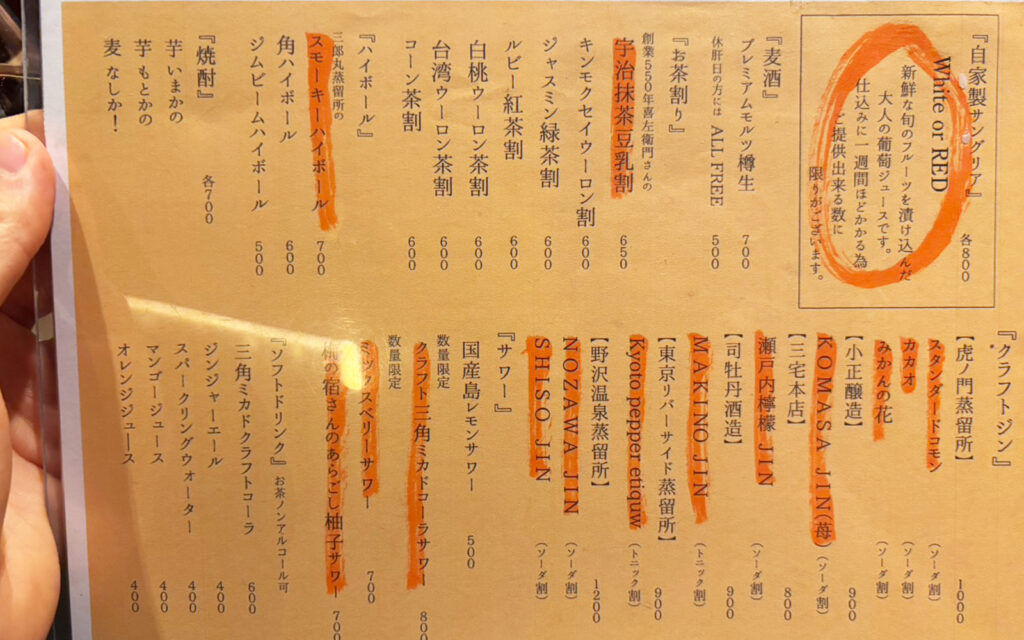 『自家製サングリア』 各800
White or RED
新鮮な旬のフルーツを漬け込んだ
大人の葡萄ジュースです。
仕込みに一週間ほどかかる為
ご提供出来る数に
限りがございます。
『麦酒』
プレミアムモルツ樽生 700
休肝日の方には ALL FREE 500
『お茶割り』
創業550年喜左衛門さんの
宇治抹茶豆乳割 650
キンモクセイウーロン割 600
ジャスミン緑茶割 600
ルビー紅茶割 600
白桃ウーロン茶割 600
台湾ウーロン茶割 600
コーン茶割 600
『ハイボール』
三郎丸蒸留所の
スモーキーハイボール 700
角ハイボール 600
ジムビームハイボール 500
『焼酎』 各700
芋 いまかの
芋 もとかの
麦 なしか！
『クラフトジン』
【虎ノ門蒸留所】 1000
スタンダードコモン (ソーダ割)
カカオ (ソーダ割)
みかんの花 (ソーダ割)
【小正醸造】 900
KOMASA JIN(苺) (ソーダ割)
【三宅本店】 800
瀬戸内檸檬 JIN (ソーダ割)
【司牡丹酒造】 900
MAKINO JIN (トニック割)
【東京リバーサイド蒸留所】 900
Kyoto pepper etiquw (トニック割)
【野沢温泉蒸留所】 1200
NOZAWA JIN (ソーダ割)
SHISO JIN (ソーダ割)
『サワー』
国産島レモンサワー 500
数量限定
クラフト三角ミカドコーラサワー 800
数量限定
ミックスベリーサワー 700
桃の宿さんのあらごし柚子サワー 700
『ソフトドリンク』 お茶ノンアルコール可
三角ミカドクラフトコーラ 600
ジンジャーエール 400
スパークリングウォーター 400
マンゴージュース 400
オレンジジュース 400